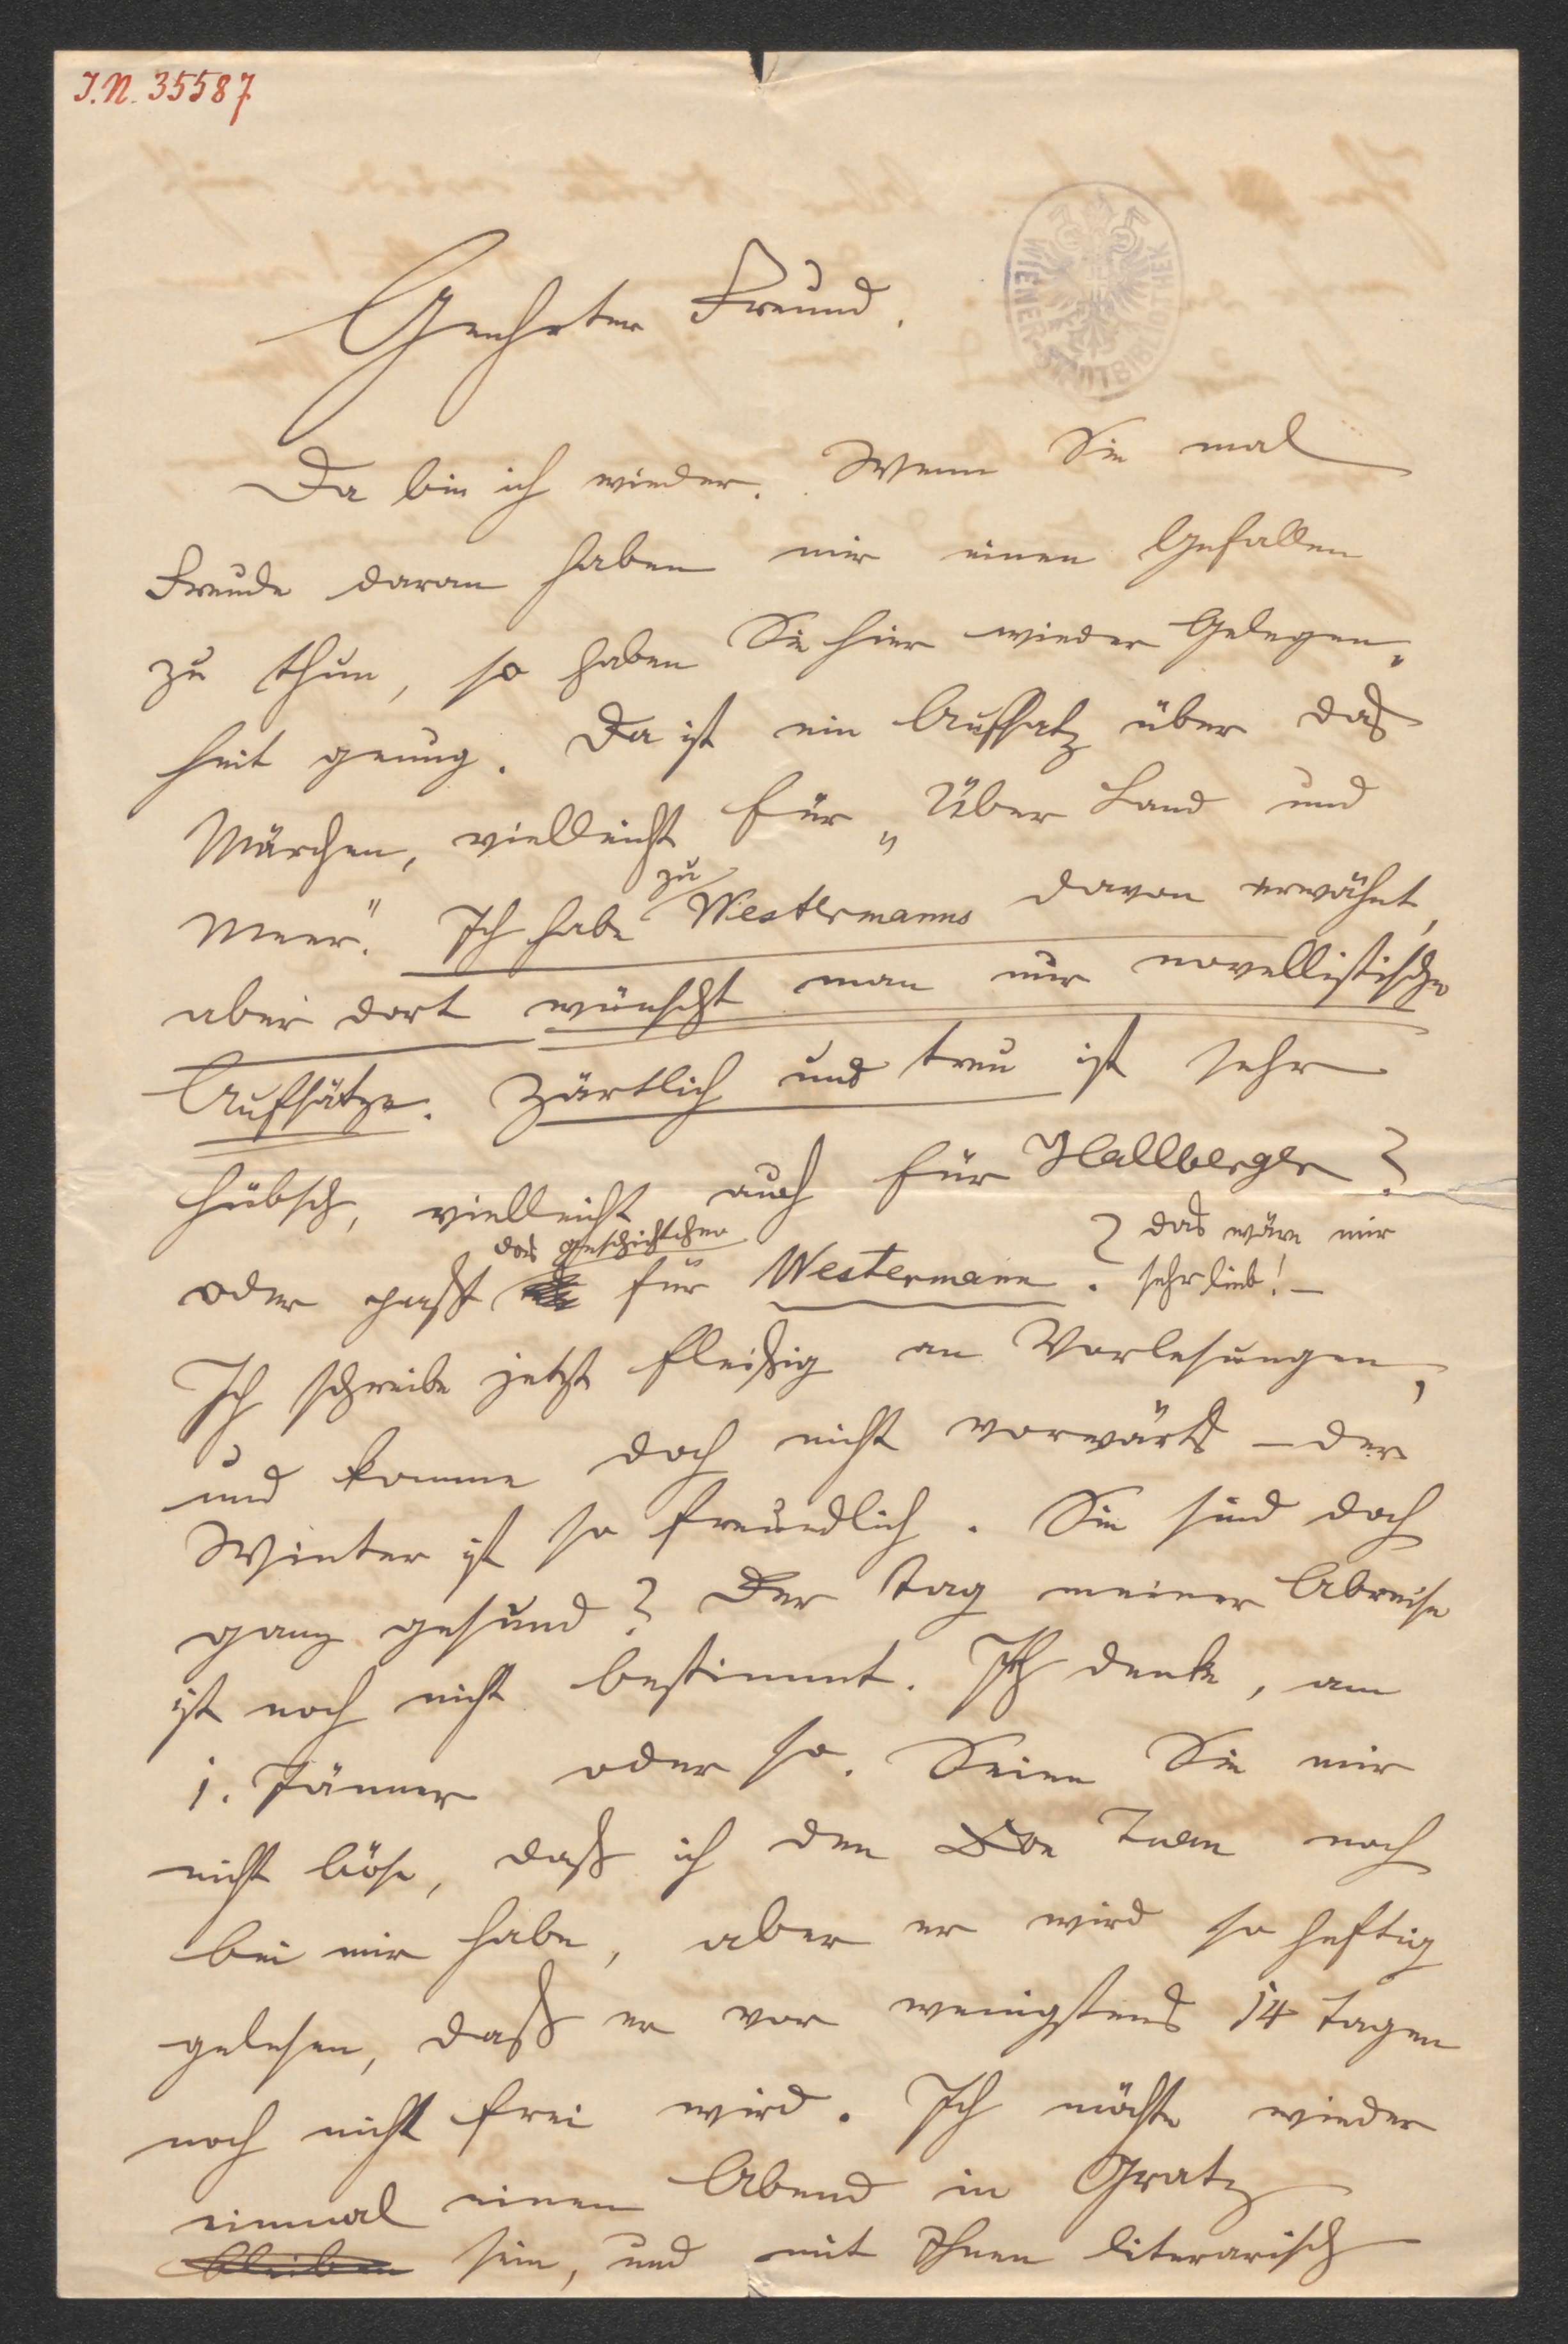 I.N. 35587
WIENER STADTBIBLIOTHEK
Geehrter Freund.
Da bin ich wieder. Wenn Sie mal
Freude daran haben mir einen Gefallen
zu thun, so haben Sie hier wieder Gelegen-
heit genug. Da ist ein Aufsatz über das
Märchen, vielleicht für „Über Land und
Meer“. Ich habe zu Westermanns davon erwähnt,
aber dort wünscht man nur novellistische
Aufsätze. Zärtlich und treu ist sehr
hübsch, vielleicht auch für Hallberger?
oder paßt das Geschichtchen für Westermann? das wäre mir
sehr lieb! –
Ich schreibe jetzt fleißig an Vorlesungen,
und komme doch nicht vorwärts – der
Winter ist so freundlich. Sie sind doch
ganz gesund? Der Tag meiner Abreise
ist noch nicht bestimmt. Ich denke, am
1. Jänner oder so. Seien Sie mir
nicht böse, daß ich den noch
bei mir habe, aber er wird so heftig
gelesen, daß er vor wenigstens 14 Tagen
noch nicht frei wird. Ich möchte wieder
einmal einen Abend in Gratz
bleiben sein, und mit Ihnen literarisch